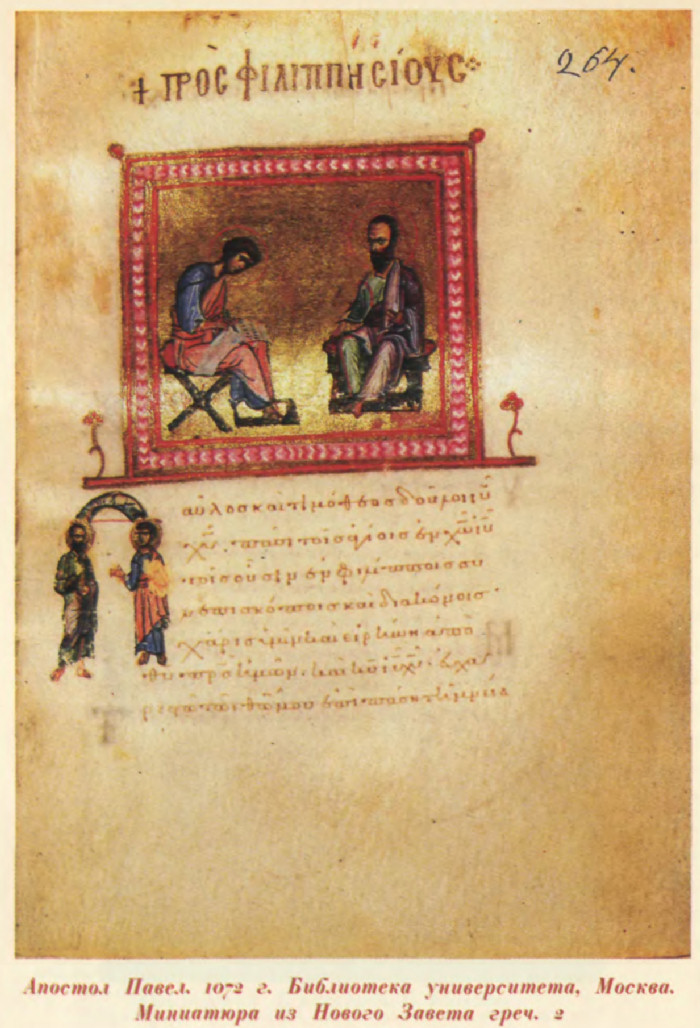 + ΠΡὸC ΦΙΛΙΠΠΗCίΟΥC
264.
Παῦλος καὶ τιμόθεος δοῦλοι ἰυ
χυ· πᾶσι τοῖς ἁγίοις ἐν χω ἰυ
τοῖς οὖσιν ἐν φιλίπποις συ
ν ἐπισκόποις καὶ διακόνοις·
χάρις ὑμῖν καὶ εἰρήνη ἀπὸ
θυ πρς ἡμῶν· καὶ κυ ἰυ χυ· εὐχα
ριστῶ τῶ θω μου ἐπὶ πάση τῆ μνεία
Апостол Павел. 1072 г. Библиотека университета, Москва.
Миниатюра из Нового Завета греч. 2